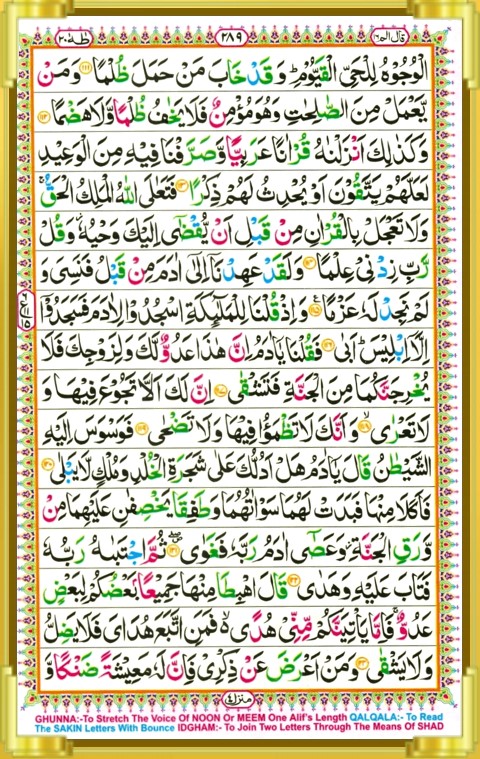 قال الم ١٦
٢٨٩
طٰهٰ ٢٠
الْوُجُوْهُ لِلْحَىِّ الْقَيُّوْمِ ؕ وَقَدْ خَابَ مَنْ حَمَلَ ظُلْمًا ﴿۱۱۱﴾ وَمَنْ
يَّعْمَلْ مِنَ الصّٰلِحٰتِ وَهُوَ مُؤْمِنٌ فَلَا يَخٰفُ ظُلْمًا وَّلَا هَضْمًا ﴿۱۱۲﴾
وَكَذٰلِكَ اَنْزَلْنٰهُ قُرْاٰنًا عَرَبِيًّا وَّصَرَّفْنَا فِيْهِ مِنَ الْوَعِيْدِ
لَعَلَّهُمْ يَتَّقُوْنَ اَوْ يُحْدِثُ لَهُمْ ذِكْرًا ﴿۱۱۳﴾ فَتَعٰلَى اللّٰهُ الْمَلِكُ الْحَقُّ ۚ
وَلَا تَعْجَلْ بِالْقُرْاٰنِ مِنْ قَبْلِ اَنْ يُّقْضٰٓى اِلَيْكَ وَحْيُهٗ ۫ وَقُلْ
رَّبِّ زِدْنِىْ عِلْمًا ﴿۱۱۴﴾ وَلَقَدْ عَهِدْنَاۤ اِلٰٓى اٰدَمَ مِنْ قَبْلُ فَنَسِىَ وَ
لَمْ نَجِدْ لَهٗ عَزْمًا ﴿۱۱۵﴾ وَاِذْ قُلْنَا لِلْمَلٰٓئِكَةِ اسْجُدُوْا لِاٰدَمَ فَسَجَدُوْۤا
اِلَّاۤ اِبْلِيْسَ ؕ اَبٰى ﴿۱۱۶﴾ فَقُلْنَا يٰۤاٰدَمُ اِنَّ هٰذَا عَدُوٌّ لَّكَ وَلِزَوْجِكَ فَلَا
يُخْرِجَنَّكُمَا مِنَ الْجَنَّةِ فَتَشْقٰى ﴿۱۱۷﴾ اِنَّ لَكَ اَلَّا تَجُوْعَ فِيْهَا وَ
لَا تَعْرٰى ﴿۱۱۸﴾ وَاَنَّكَ لَا تَظْمَؤُا فِيْهَا وَلَا تَضْحٰى ﴿۱۱۹﴾ فَوَسْوَسَ اِلَيْهِ
الشَّيْطٰنُ قَالَ يٰۤاٰدَمُ هَلْ اَدُلُّكَ عَلٰى شَجَرَةِ الْخُلْدِ وَمُلْكٍ لَّا يَبْلٰى ﴿۱۲۰﴾
فَاَكَلَا مِنْهَا فَبَدَتْ لَهُمَا سَوْاٰتُهُمَا وَطَفِقَا يَخْصِفٰنِ عَلَيْهِمَا مِنْ
وَّرَقِ الْجَنَّةِ ؗ وَعَصٰٓى اٰدَمُ رَبَّهٗ فَغَوٰى ﴿۱۲۱﴾ ثُمَّ اجْتَبٰهُ رَبُّهٗ
فَتَابَ عَلَيْهِ وَهَدٰى ﴿۱۲۲﴾ قَالَ اهْبِطَا مِنْهَا جَمِيْعًۢا بَعْضُكُمْ لِبَعْضٍ
عَدُوٌّ ۚ فَاِمَّا يَاْتِيَنَّكُمْ مِّنِّىْ هُدًى ۙ فَمَنِ اتَّبَعَ هُدَاىَ فَلَا يَضِلُّ
وَلَا يَشْقٰى ﴿۱۲۳﴾ وَمَنْ اَعْرَضَ عَنْ ذِكْرِىْ فَاِنَّ لَهٗ مَعِيْشَةً ضَنْكًا وَّ
منزل ٤
GHUNNA:-To Stretch The Voice Of NOON Or MEEM One Alif's Length QALQALA:- To Read
The SAKIN Letters With Bounce IDGHAM:- To Join Two Letters Through The Means Of SHAD